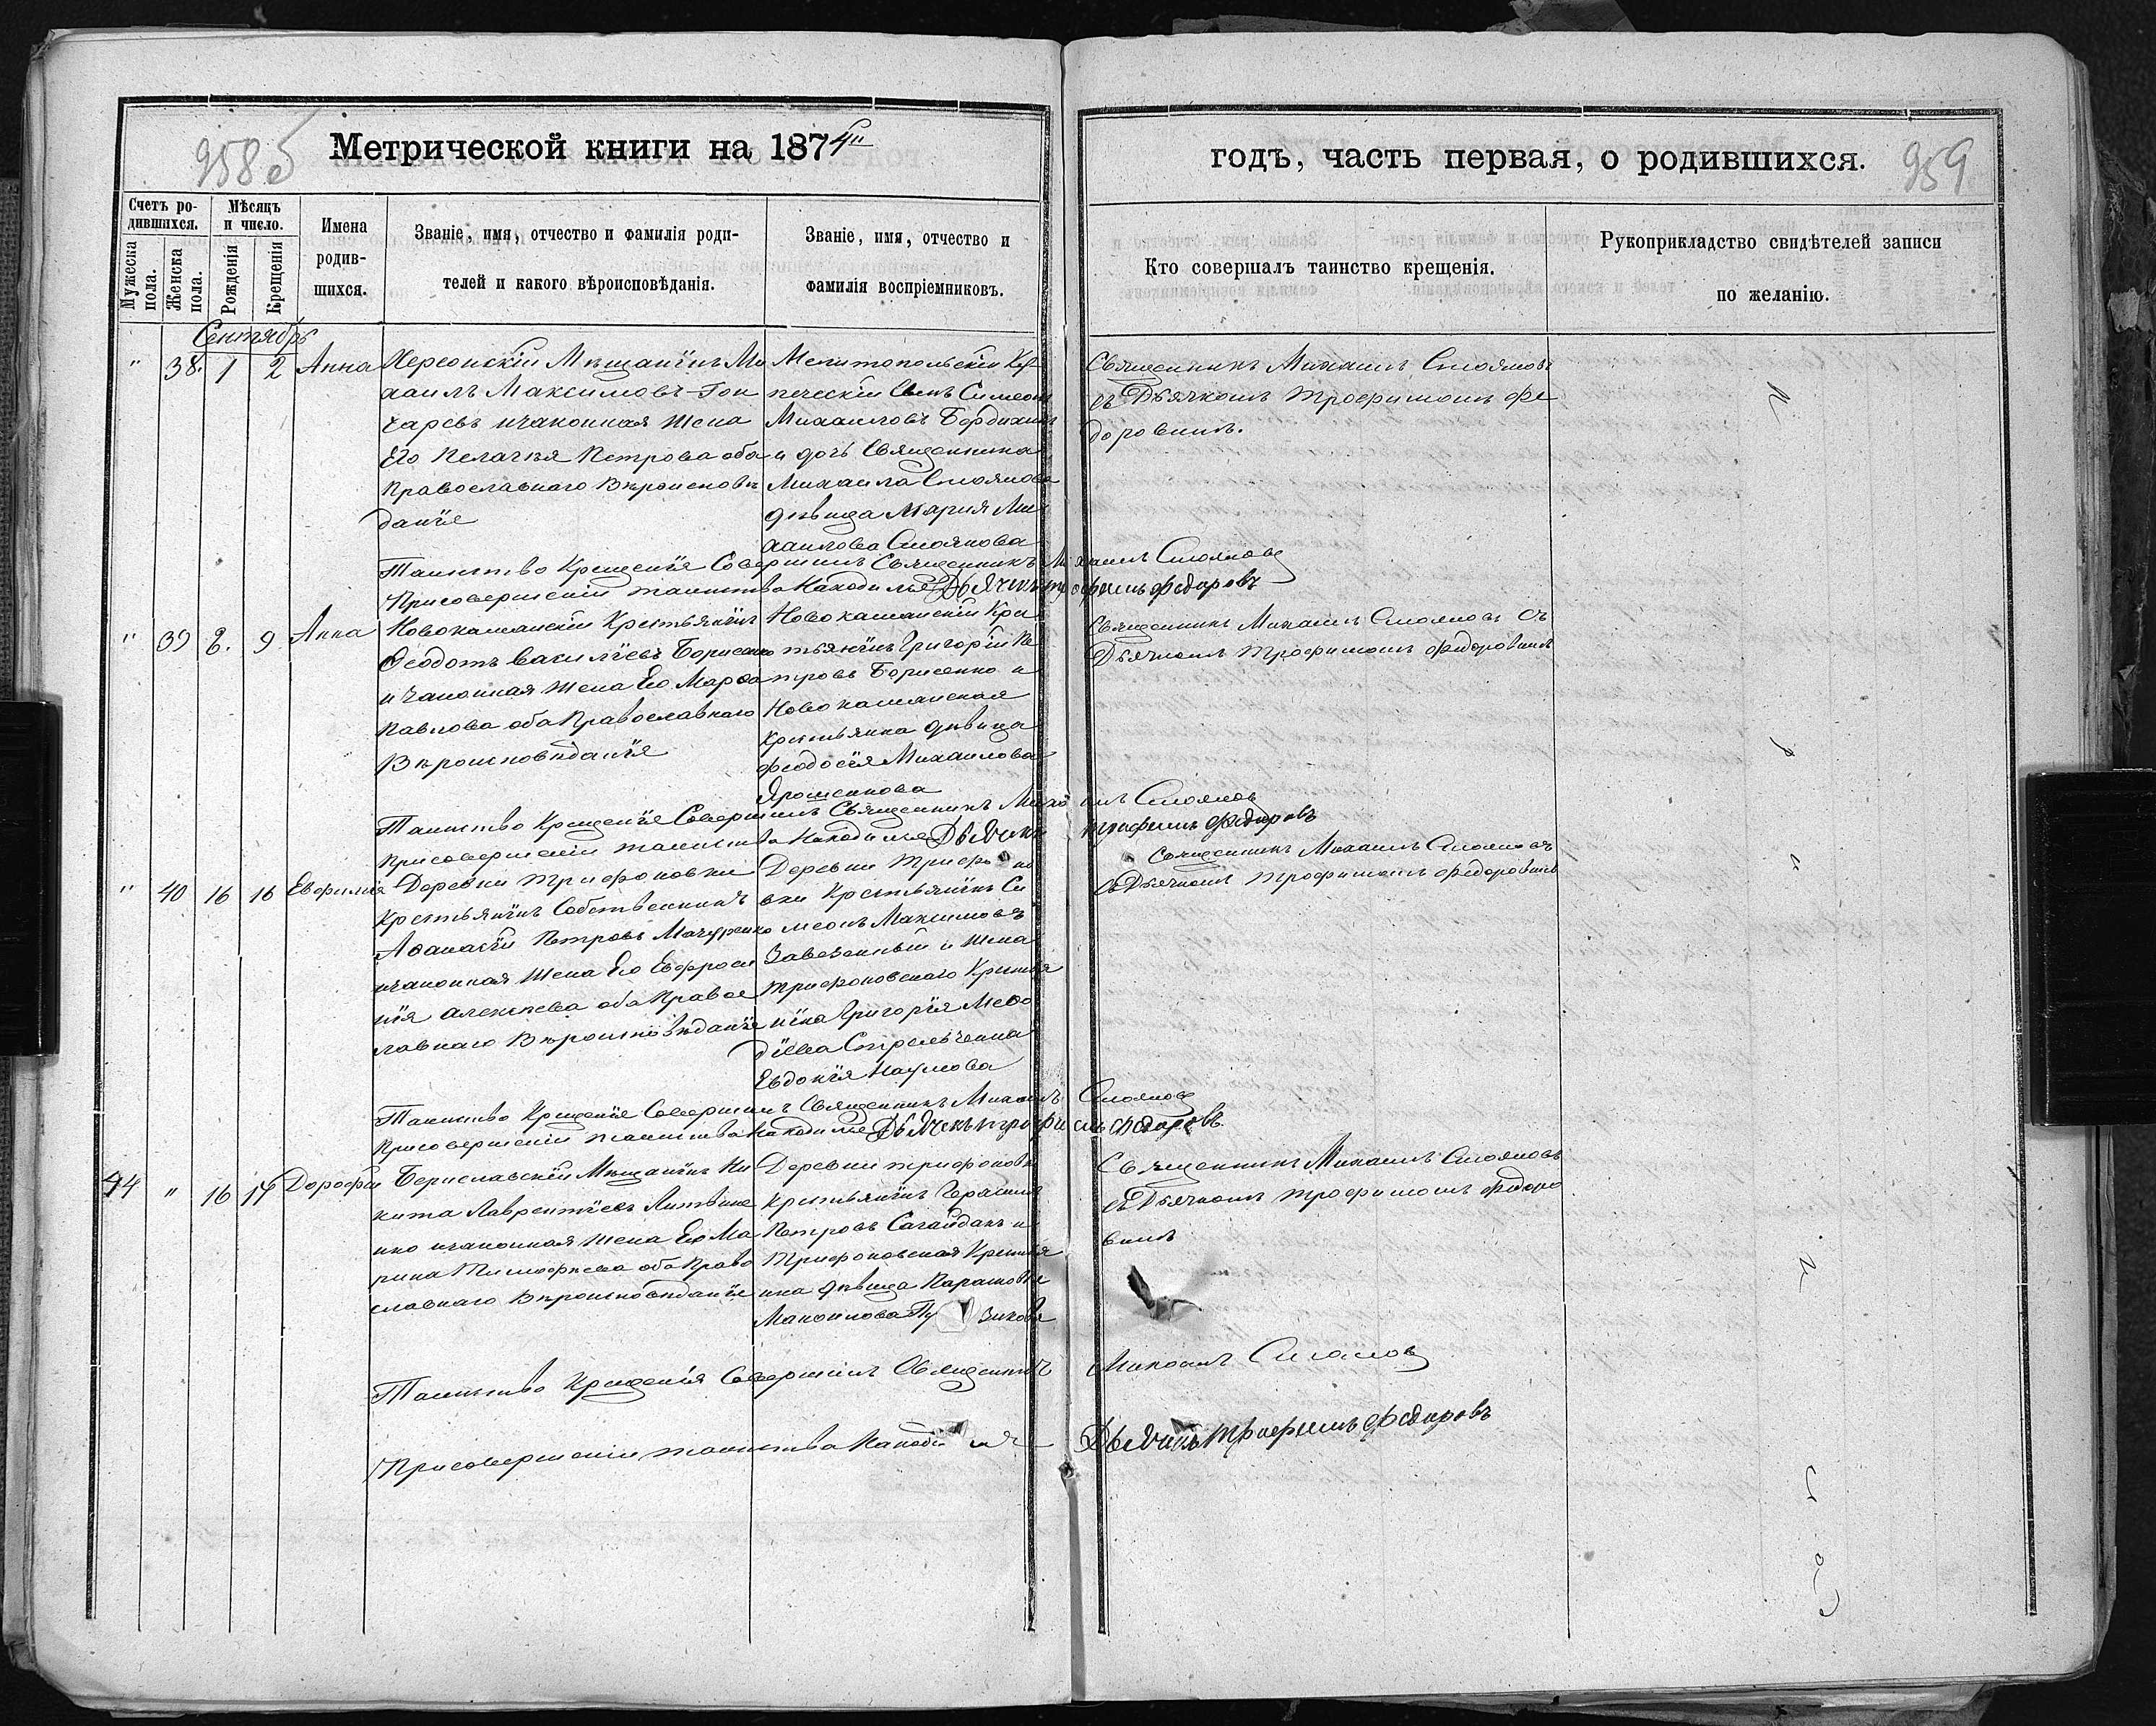 958 б
Метрической книги на 1874
годъ, часть первая, о родившихся.
959
Счетъ родившихся.
Мужеска пола.
Женска пола.
Мѣсяцъ и число.
Рожденія
Крещенія
Имена родившихся.
Званіе, имя, отчество и фамилія родителей и какого вѣроисповѣданія.
Званіе, имя, отчество и фамилія воспріемниковъ.
Кто совершалъ таинство крещенія.
Рукоприкладство свидѣтелей записи по желанію.
Сентябрь
" 38. 1 2 Анна
Херсонскій Мѣщанинъ Ми
хаилъ Максимовъ Гон
чаревъ изаконная жена
Его Пелагія Петрова оба
Православнаго Вѣроисповѣ
данія
Мелитопольскій Ку
печескій Сынъ Симеонъ
Михаиловъ
и дочь Священника
Михаила Стоянова
дѣвица Марія Ми
хаилова Стоянова
Священникъ Михаилъ Стояновъ
съ Дьячкомъ Трофимомъ Фе
доровимъ.
Таинство Крещенія Совершилъ Священникъ Михаилъ Стояновъ
Присовершеніи таинства Находился Дьячекъ Трофимъ Федоровъ
" 39 8. 9 Анна
Новокаманскій Крестьянинъ
Феодотъ Василіевъ Борисенко
изаконная жена Его Марфа
Павлова оба Православнаго
Вѣроисповѣданія
Новокаманскій Крес
тьянинъ Григорій Пе
тровъ Борисенко и
Новокаманская
Крестьянка дѣвица
Феодосія Михаилова
Ярошенкова
Священникъ Михаилъ Стояновъ съ
Дьячкомъ Трофимомъ Федоровимъ
Таинство Крещенія Совершилъ Священникъ Михаилъ Стояновъ
Присовершеніи таинства Находился Дьячекъ Трофимъ Федоровъ
" 40 16 16 Евфимія
Деревни Трифоновки
Крестьянинъ Собственникъ
Афанасій Петровъ
изаконная жена Его Евфроси
нія Алексѣева оба Правос
лавнаго Вѣроисповѣданія
Деревни Трифоно
вки Крестьянинъ Си
меонъ Максимовъ
и жена
Трифоновскаго Крестья
нина Григорія Мефо
діева Стрельченка
Евдокія Наумова
Священникъ Михаилъ Стояновъ
съ Дьячкомъ Трофимомъ Федоровимъ
Таинство Крещенія Совершилъ Священникъ Михаилъ Стояновъ
Присовершеніи таинства Находился Дьячекъ Трофимъ Федоровъ
44 " 16 17 Дорофей
Бериславскій Мѣщанинъ Ни
кита Лаврентіевъ Литвине
нко изаконная жена Его Ма
рина Тимофѣева оба Право
славнаго Вѣроисповѣданія
Деревни Трифоновки
Крестьянинъ Герасимъ
Петровъ Сагайдакъ и
Трифоновская Крестья
нка дѣвица
Священникъ Михаилъ Стояновъ
съ Дьячкомъ Трофимомъ Федоро
вимъ
Таинство Крещенія Совершилъ Священникъ Михаилъ Стояновъ
Присовершеніи таинства Находился Дьячекъ Трофимъ Федоровъ